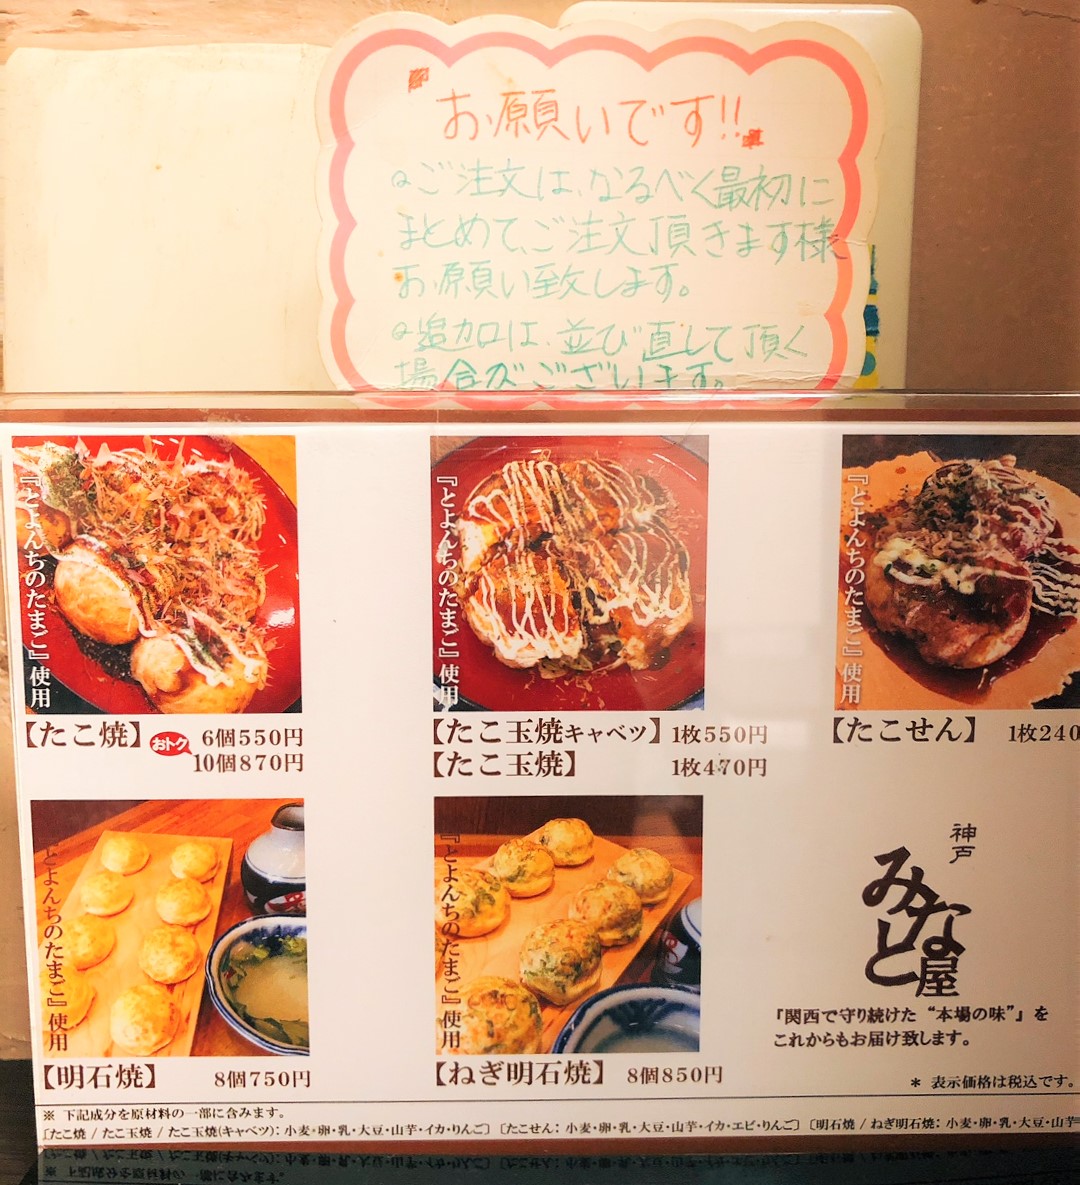 お願いです!!
ご注文は、なるべく最初に
まとめて、ご注文頂きます様
お願い致します。
追加は、並び直して頂く
場合がございます。
『とよんちのたまご』使用
【たこ焼】
おトク
6個550円
10個870円
『とよんちのたまご』使用
【たこ玉焼キャベツ】1枚550円
【たこ玉焼】 1枚470円
『とよんちのたまご』使用
【たこせん】 1枚240
『とよんちのたまご』使用
【明石焼】 8個750円
『とよんちのたまご』使用
【ねぎ明石焼】 8個850円
神戸
みなと屋
『関西で守り続けた“本場の味”』を
これからもお届け致します。
＊ 表示価格は税込です。
※ 下記成分を原材料の一部に含みます。
［たこ焼 / たこ玉焼 / たこ玉焼(キャベツ)：小麦・卵・乳・大豆・山芋・イカ・りんご］［たこせん：小麦・卵・乳・大豆・山芋・イカ・エビ・りんご］［明石焼 / ねぎ明石焼：小麦・卵・乳・大豆・山芋